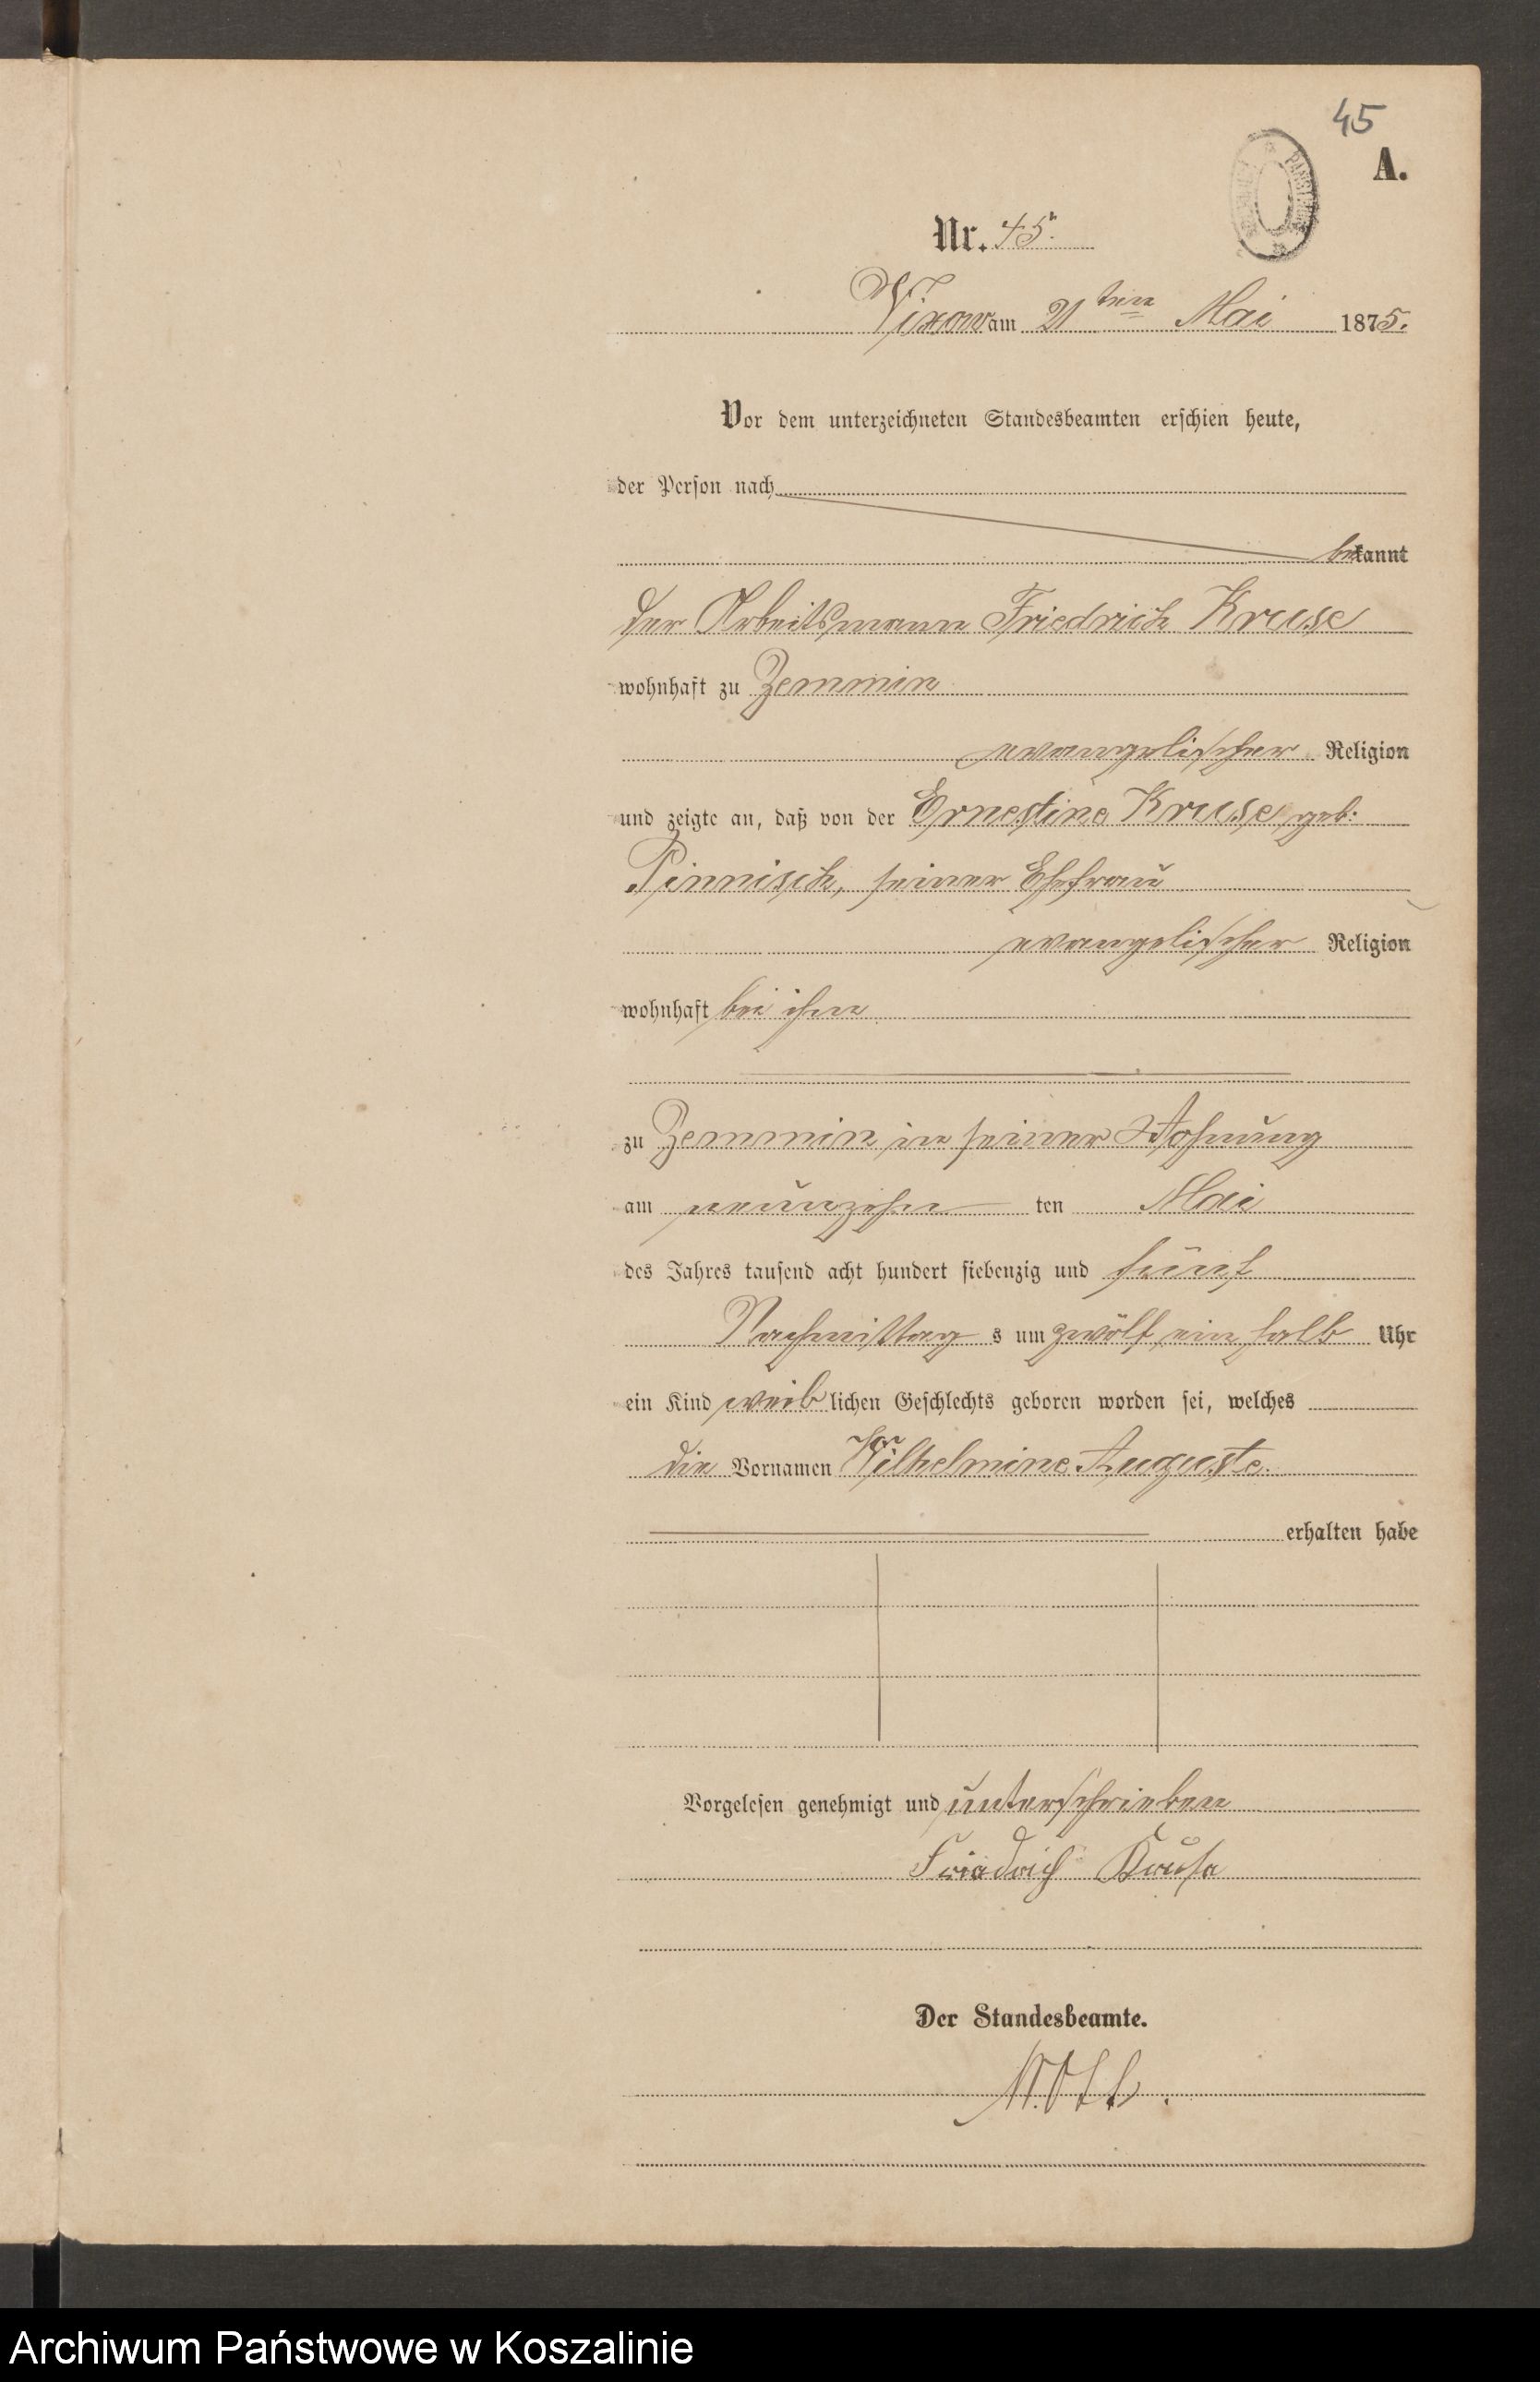 45
A.
Nr. 45.
Vixow am 21ten Mai 1875.
Vor dem unterzeichneten Standesbeamten erschien heute,
der Person nach
bekannt
der Arbeitsmann Friedrich Kruse
wohnhaft zu Zemmin
evangelischer Religion
und zeigte an, daß von der Ernestine Kruse geb:
Pinnisch, seiner Ehefrau
evangelischer Religion
wohnhaft bei ihm
zu Zemmin in seiner Wohnung
am neunzehn ten Mai
des Jahres tausend acht hundert siebenzig und fünf
Nachmittag s um zwölf ein halb Uhr
ein Kind weib lichen Geschlechts geboren worden sei, welches
die Vornamen Wilhelmine Auguste.
erhalten habe
Vorgelesen genehmigt und unterschrieben
Friedrich Kruse
Der Standesbeamte.
Archiwum Państwowe w Koszalinie